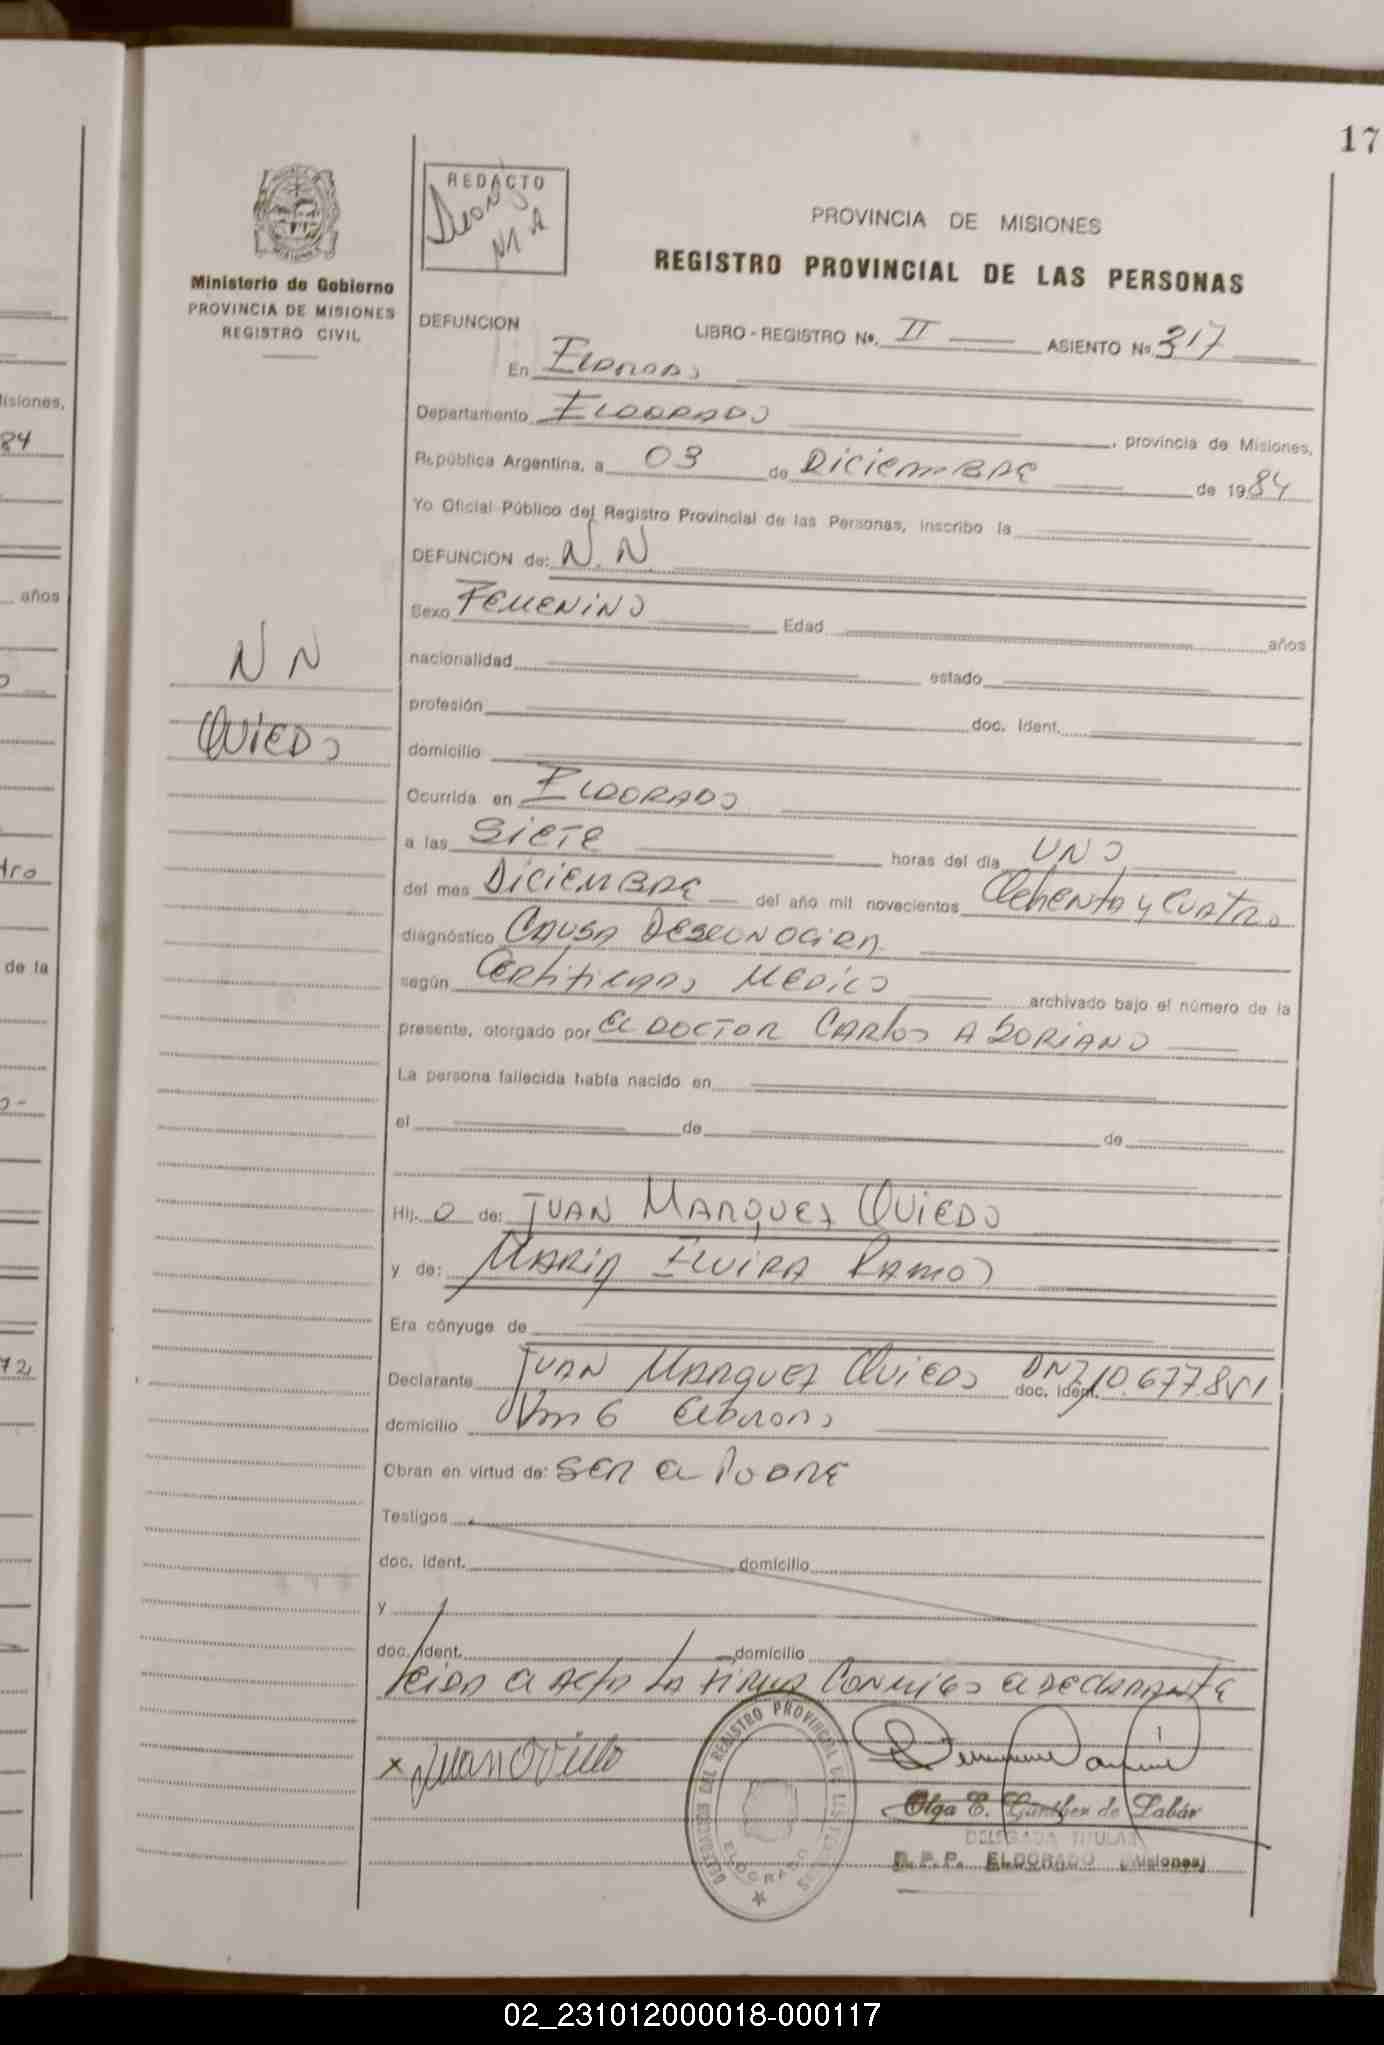 17
REDACTO
N1 A
Ministerio de Gobierno
PROVINCIA DE MISIONES
REGISTRO CIVIL
PROVINCIA DE MISIONES
REGISTRO PROVINCIAL DE LAS PERSONAS
DEFUNCION LIBRO - REGISTRO Nº. II ASIENTO Nº 317
En ELDORADO
Departamento ELDORADO, provincia de Misiones,
República Argentina, a 03 de DICIEMBRE de 1984
Yo Oficial Público del Registro Provincial de las Personas, inscribo la
DEFUNCION de: N.N.
Sexo FEMENINO Edad años
nacionalidad estado
profesión doc. ident.
domicilio
Ocurrida en ELDORADO
a las SIETE horas del día UNO
del mes DICIEMBRE del año mil novecientos OCHENTA y CUATRO
diagnóstico CAUSA DESCONOCIDA
según CERTIFICADO MEDICO archivado bajo el número de la
presente, otorgado por EL DOCTOR CARLOS A SORIANO
La persona fallecida había nacido en
el de de
Hij. O de: JUAN MARQUEZ OVIEDO
y de: MARIA ELVIRA RAMOS
Era cónyuge de
Declarante JUAN MARQUEZ OVIEDO doc. ident. DNI 10.677.851
domicilio Km 6 ELDORADO
Obran en virtud de: SER EL PADRE
Testigos
doc. ident. domicilio
y
doc. ident. domicilio
LEIDA EL ACTA LA FIRMA CONMIGO EL DECLARANTE
NN
OVIEDO
x Juan Oviedo
DELEGACION DEL REGISTRO PROVINCIAL DE LAS PERSONAS
ELDORADO
Olga E. Günther de Labár
DELEGADA TITULAR
R.P.P. ELDORADO (Misiones)
isiones,
84
años
de la
72
02_231012000018-000117